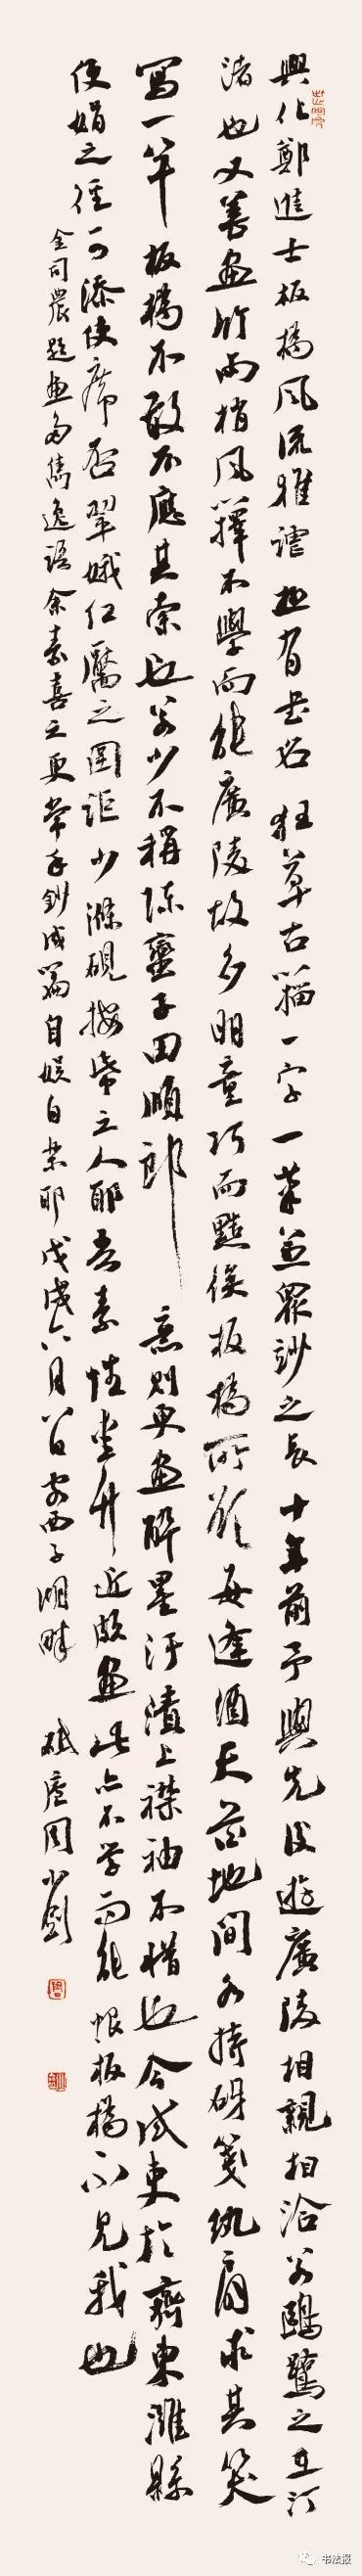 興化鄭進士板橋風流雅謔極有書名狂草古籀一字一筆兼眾妙之長十年前予與先後遊廣陵相親相洽若鷗鷺之在汀
渚也又善畫竹雨梢風籜不學而能廣陵故多明童巧而黠俟板橋所欲每逢酒天花地間各持砑箋紈扇求其笑
寫一竿板橋不敢不應其索也若少不稱陳蠻子田順郎意則更畫醉墨汙漬上襟袖不惜也今試吏於齊東濰縣
便娟之徑可添使席否翠娥紅靨之圍詎少滌硯按紙之人耶吾素性愛竹近頗畫此亦不學而能恨板橋不見我也
金司農題畫多雋逸語余素喜之更常手鈔成篇自娛自樂耶戊戌六月 客西子湖畔 砥廬周小劍
書法報